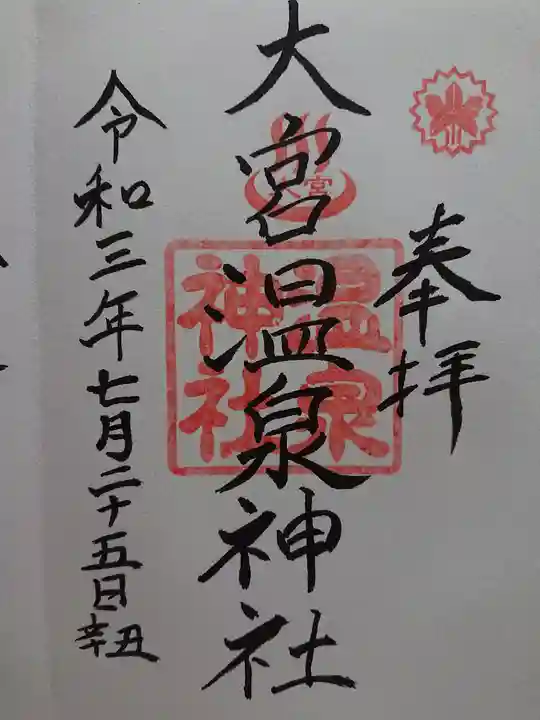 奉拝
大宮温泉神社
大宮
温泉
神社
令和三年七月二十五日辛丑